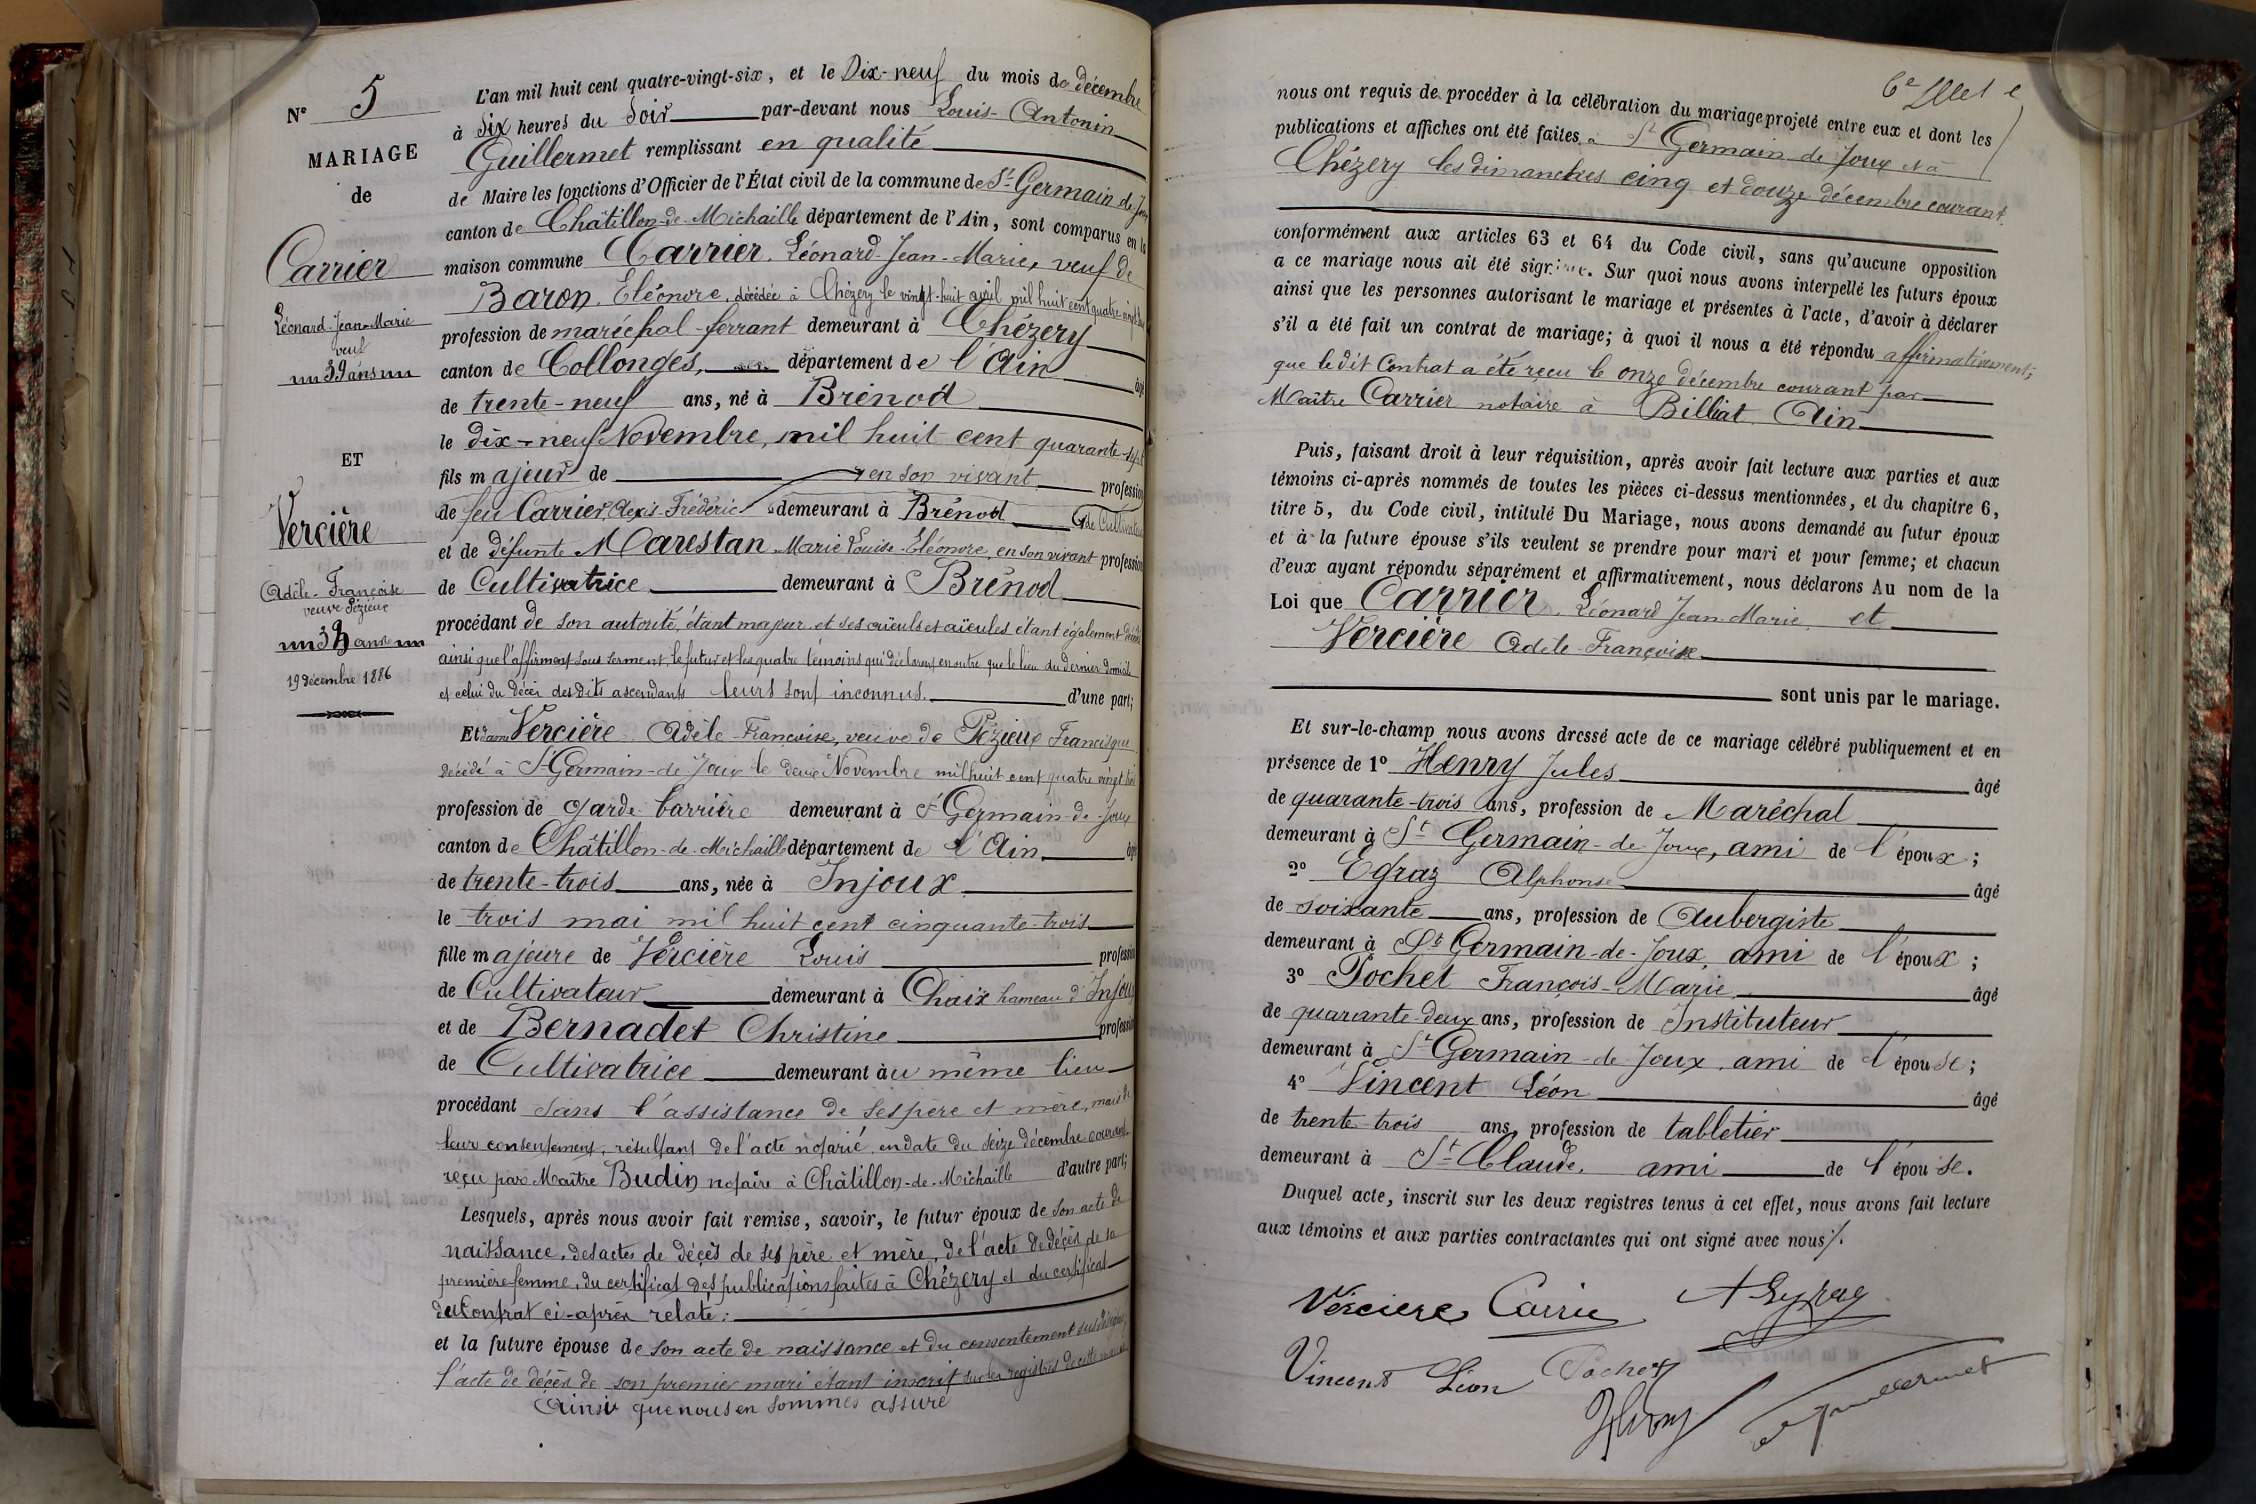 N° 5
MARIAGE
de
Carrier
Léonard-Jean-Marie
veuf
39 ans
ET
Vercière
Adèle-Françoise
veuve Pézieux
ans
19 décembre 1886
L'an mil huit cent quatre-vingt-six, et le Dix-neuf du mois de décembre
à Six heures du Soir par-devant nous Louis-Antonin
Guillermet remplissant en qualité
de Maire les fonctions d'Officier de l'État civil de la commune de St-Germain-de-Joux
canton de Châtillon-de-Michaille département de l'Ain, sont comparus en la
maison commune Carrier, Léonard-Jean-Marie, veuf de
Baron, Eléonore, décédée à Chézery le vingt-huit avril mil huit cent quatre-vingt
profession de maréchal-ferrant demeurant à Chézery
canton de Collonges, département de l'Ain âgé
de trente-neuf ans, né à Brénod
le dix-neuf Novembre, mil huit cent quarante-sept
fils majeur de en son vivant profession
de feu Carrier, Alexis-Frédéric demeurant à Brénod de Cultivateur
et de défunte Marestan Marie Louise-Eléonore, en son vivant profession
de Cultivatrice demeurant à Brénod
procédant de son autorité, étant majeur et ses aïeuls et aïeules étant également décédés
ainsi que l'affirment sous serment, le futur et les quatre témoins qui déclarent en outre que le lieu du dernier domicile
et celui du décès desdits ascendants leurs sont inconnus. d'une part;
Et dame Vercière Adèle-Françoise, veuve de Pézieux Francisque
décédé à St-Germain-de-Joux le deux Novembre mil huit cent quatre vingt trois
profession de garde-barrière demeurant à St Germain-de-Joux
canton de Châtillon-de-Michaille département de l'Ain, âgée
de trente-trois ans, née à Injoux
le trois mai mil huit cent cinquante-trois
fille majeure de Vercière Louis profession
de Cultivateur demeurant à Chaix hameau d'Injoux
et de Bernadet Christine profession
de Cultivatrice demeurant au même lieu
procédant sans l'assistance de ses père et mère, mais de
leur consentement, résultant de l'acte notarié en date du seize décembre courant
reçu par Maître Budin notaire à Châtillon-de-Michaille d'autre part;
Lesquels, après nous avoir fait remise, savoir, le futur époux de son acte de
naissance, des actes de décès de ses père et mère, de l'acte de décès de sa
première femme, du certificat des publications faites à Chézery et du certificat
du Contrat ci-après relaté;
et la future épouse de son acte de naissance et du consentement susdésigné,
l'acte de décès de son premier mari étant inscrit sur les registres de cette mairie
Ainsi que nous en sommes assuré
nous ont requis de procéder à la célébration du mariage projeté entre eux et dont les
publications et affiches ont été faites à St Germain-de-Joux et à
Chézery les dimanches cinq et douze décembre courant
conformément aux articles 63 et 64 du Code civil, sans qu'aucune opposition
a ce mariage nous ait été signifiée. Sur quoi nous avons interpellé les futurs époux
ainsi que les personnes autorisant le mariage et présentes à l'acte, d'avoir à déclarer
s'il a été fait un contrat de mariage; à quoi il nous a été répondu affirmativement;
que ledit Contrat a été reçu le onze décembre courant par
Maître Carrier notaire à Billiat Ain
Puis, faisant droit à leur réquisition, après avoir fait lecture aux parties et aux
témoins ci-après nommés de toutes les pièces ci-dessus mentionnées, et du chapitre 6,
titre 5, du Code civil, intitulé Du Mariage, nous avons demandé au futur époux
et à la future épouse s'ils veulent se prendre pour mari et pour femme; et chacun
d'eux ayant répondu séparément et affirmativement, nous déclarons Au nom de la
Loi que Carrier, Léonard Jean-Marie, et
Vercière Adèle-Françoise
sont unis par le mariage.
Et sur-le-champ nous avons dressé acte de ce mariage célébré publiquement et en
présence de 1° Henry Jules âgé
de quarante-trois ans, profession de Maréchal
demeurant à St Germain-de-Joux, ami de l'époux;
2° Egraz Alphonse âgé
de soixante ans, profession de Aubergiste
demeurant à St Germain-de-Joux, ami de l'époux;
3° Pochet François-Marie âgé
de quarante-deux ans, profession de Instituteur
demeurant à St Germain-de-Joux, ami de l'épouse;
4° Vincent Léon âgé
de trente-trois ans, profession de tabletier
demeurant à St-Claude, ami de l'épouse.
Duquel acte, inscrit sur les deux registres tenus à cet effet, nous avons fait lecture
aux témoins et aux parties contractantes qui ont signé avec nous /.
Verciere Carrie A Egraz
Vincent Léon Pochet